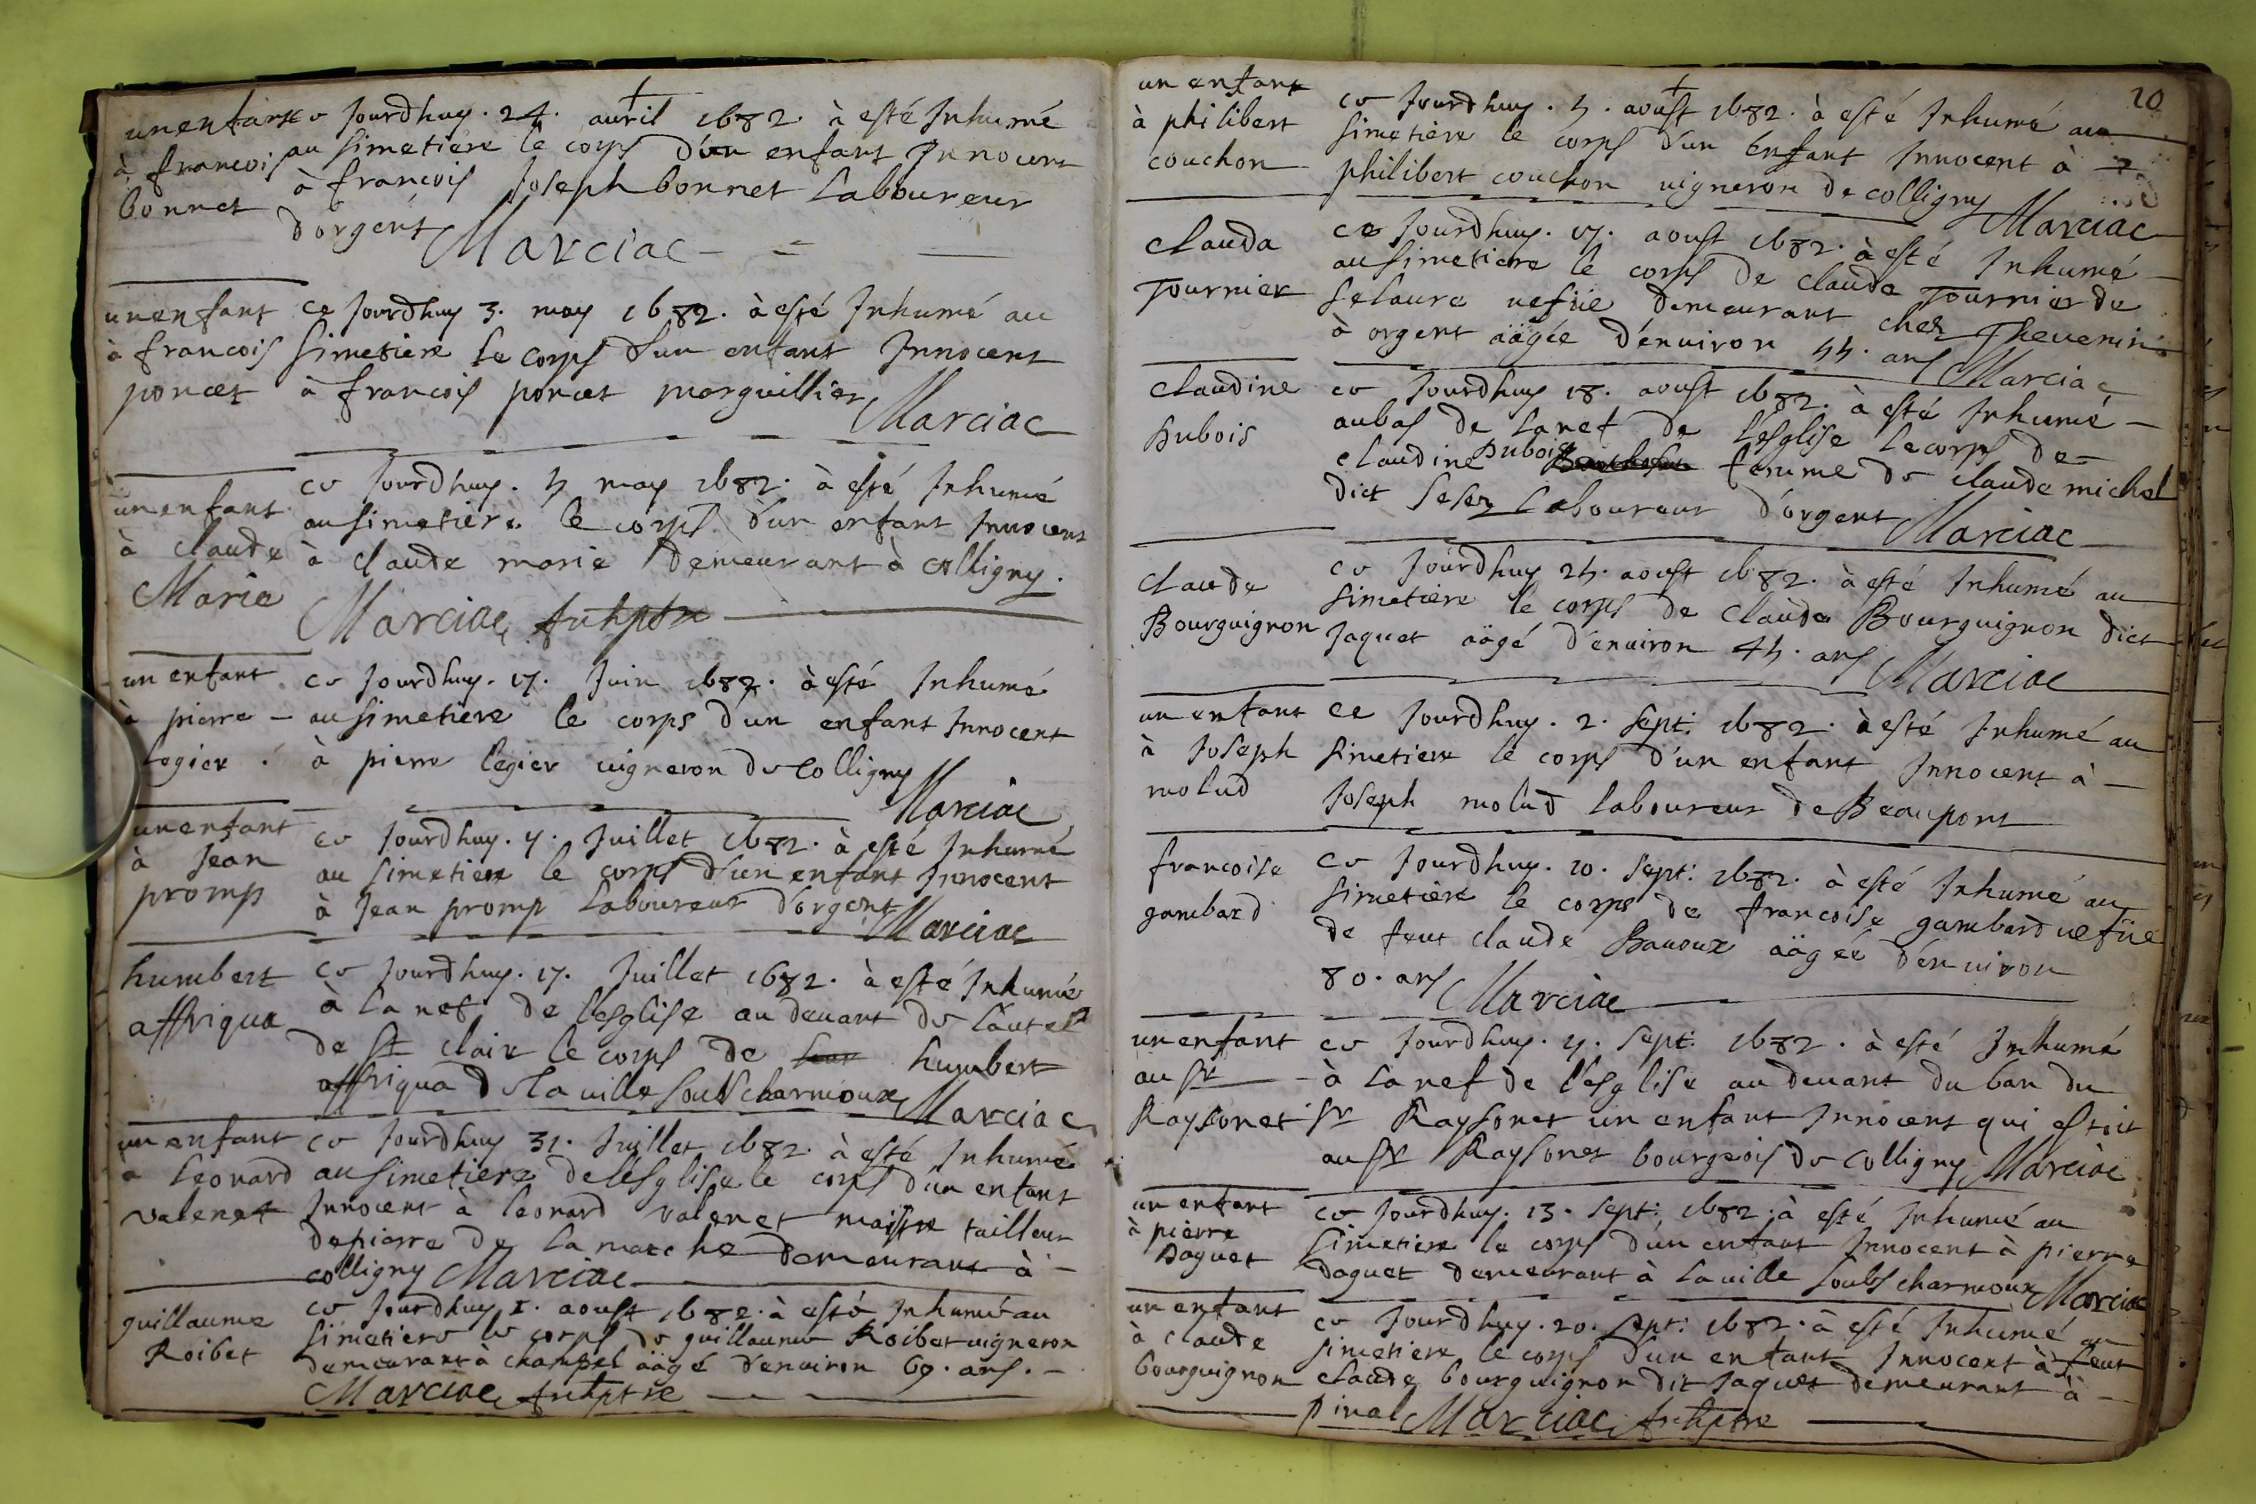 un enfant
à francois
bonnet
ce Jourdhuy. 24. auvril 1682. à esté Inhumé
au simetiére le corps d'un enfant Innocent
à francois Joseph bonnet Laboureur
d'orgent Marciac
un enfant
à francois
poncet
ce Jourdhuy 3. may 1682. à esté Inhumé au
simetiere le corps d'un enfant Innocent
à francois poncet marguillier
Marciac
un enfant
à claude
Marie
ce Jourdhuy. 5 may 1682. à esté Inhumé
au simetiere le corps d'un enfant Innocent
à claude marie demeurant à colligny.
Marciac
un enfant
à pierre
Legier
ce Jourdhuy. 17. Juin 1682. à esté Inhumé
au simetiere le corps d'un enfant Innocent
à pierre legier uigneron de colligny
Marciac
un enfant
à Jean
promp
ce Jourdhuy. 7. Juillet 1682. à esté Inhumé
au simetiere le corps d'un enfant Innocent
à Jean promp Laboureur d'orgent
Marciac
humbert
affriqua
ce Jourdhuy. 17. Juillet 1682. à esté Inhumé
à la nef de l'esglise au deuant de l'autel
de St clair le corps de humbert
affriqua de la uille soubs charmoux
Marciac
un enfant
à Leonard
valenet
ce Jourdhuy 31. Juillet 1682. à esté Inhumé
au simetiere de l'esglise le corps d'un enfant
Innocent à leonard valenet maistre tailleur
de pierre de la marche demeurant à
colligny Marciac
guillaume
Roibet
ce Jourdhuy 1. aoust 1682. à esté Inhumé au
simetiere le corps de guillaume Roibet uigneron
demeurant à champel äägé d'enuiron 69. ans.
Marciac
20
un enfant
à philibert
couchon
ce Jourdhuy. 5. aoust 1682. à esté Inhumé au
simetière le corps d'un enfant Innocent à
philibert couchon uigneron de colligny
Marciac
Clauda
Tournier
ce Jourdhuy. 17. aoust 1682. à esté Inhumé
au simetiere le corps de clauda Tournier de
Selaura uefüe demeurant chez Theuenin
à orgent äägée d'enuiron 55. ans Marciac
Claudine
Dubois
ce Jourdhuy 18. aoust 1682. à esté Inhumé
au bas de la nef de l'esglise le corps de
claudine Dubois femme de claude michel
dict Sesez Laboureur d'orgent
Marciac
Claude
Bourguignon
ce Jourdhuy 25. aoust 1682. à esté Inhumé au
simetiere le corps de claude Bourguignon dict
Jaquet äägé d'enuiron 45. ans
Marciac
un enfant
à Joseph
molud
ce Jourdhuy. 2. Sept: 1682. à esté Inhumé au
simetiere le corps d'un enfant Innocent à
Joseph molud laboureur de Beaupont
francoise
gambard
ce Jourdhuy. 10. Sept: 1682. à esté Inhumé au
simetiere le corps de francoise gambard uefüe
de feut claude Bauoux äägéé d'enuiron
80. ans Marciac
un enfant
au Sr
Raysonet
ce Jourdhuy. 11. Sept: 1682. à esté Inhumé
à la nef de l'esglise au deuant du ban du
Sr Raysonet un enfant Innocent qui estoit
au Sr Raysonet bourgeois de colligny Marciac
un enfant
à pierre
Daguet
ce Jourdhuy. 13. Sept: 1682. à esté Inhumé au
simetiere le corps d'un enfant Innocent à pierre
daguet demeurant à la uille soubs charmoux Marciac
un enfant
à claude
bourguignon
ce Jourdhuy. 20. Sept: 1682. à esté Inhumé au
simetiere le corps d'un enfant Innocent à feut
claude bourguignon dit Jaquet demeurant à
pinal Marciac